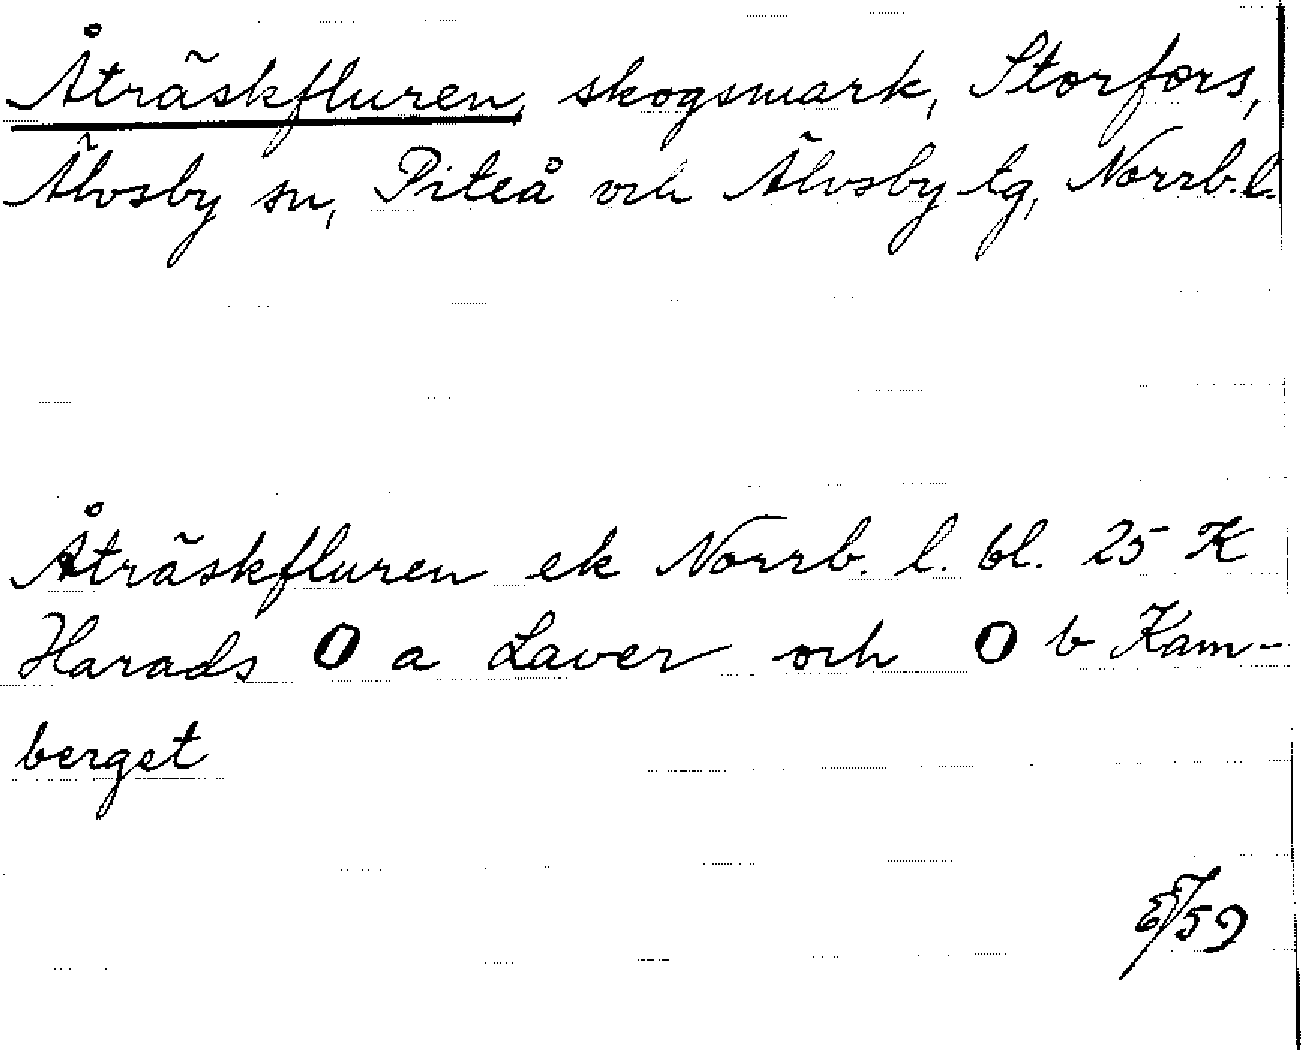 Åträskfluren, skogsmark, Storfors,
Älvsby sn, Piteå och Älvsby tg, Norrb. l.
Åträskfluren ek Norrb. l. bl. 25 K
Harads O a Laver och O b Kam-
berget
/59